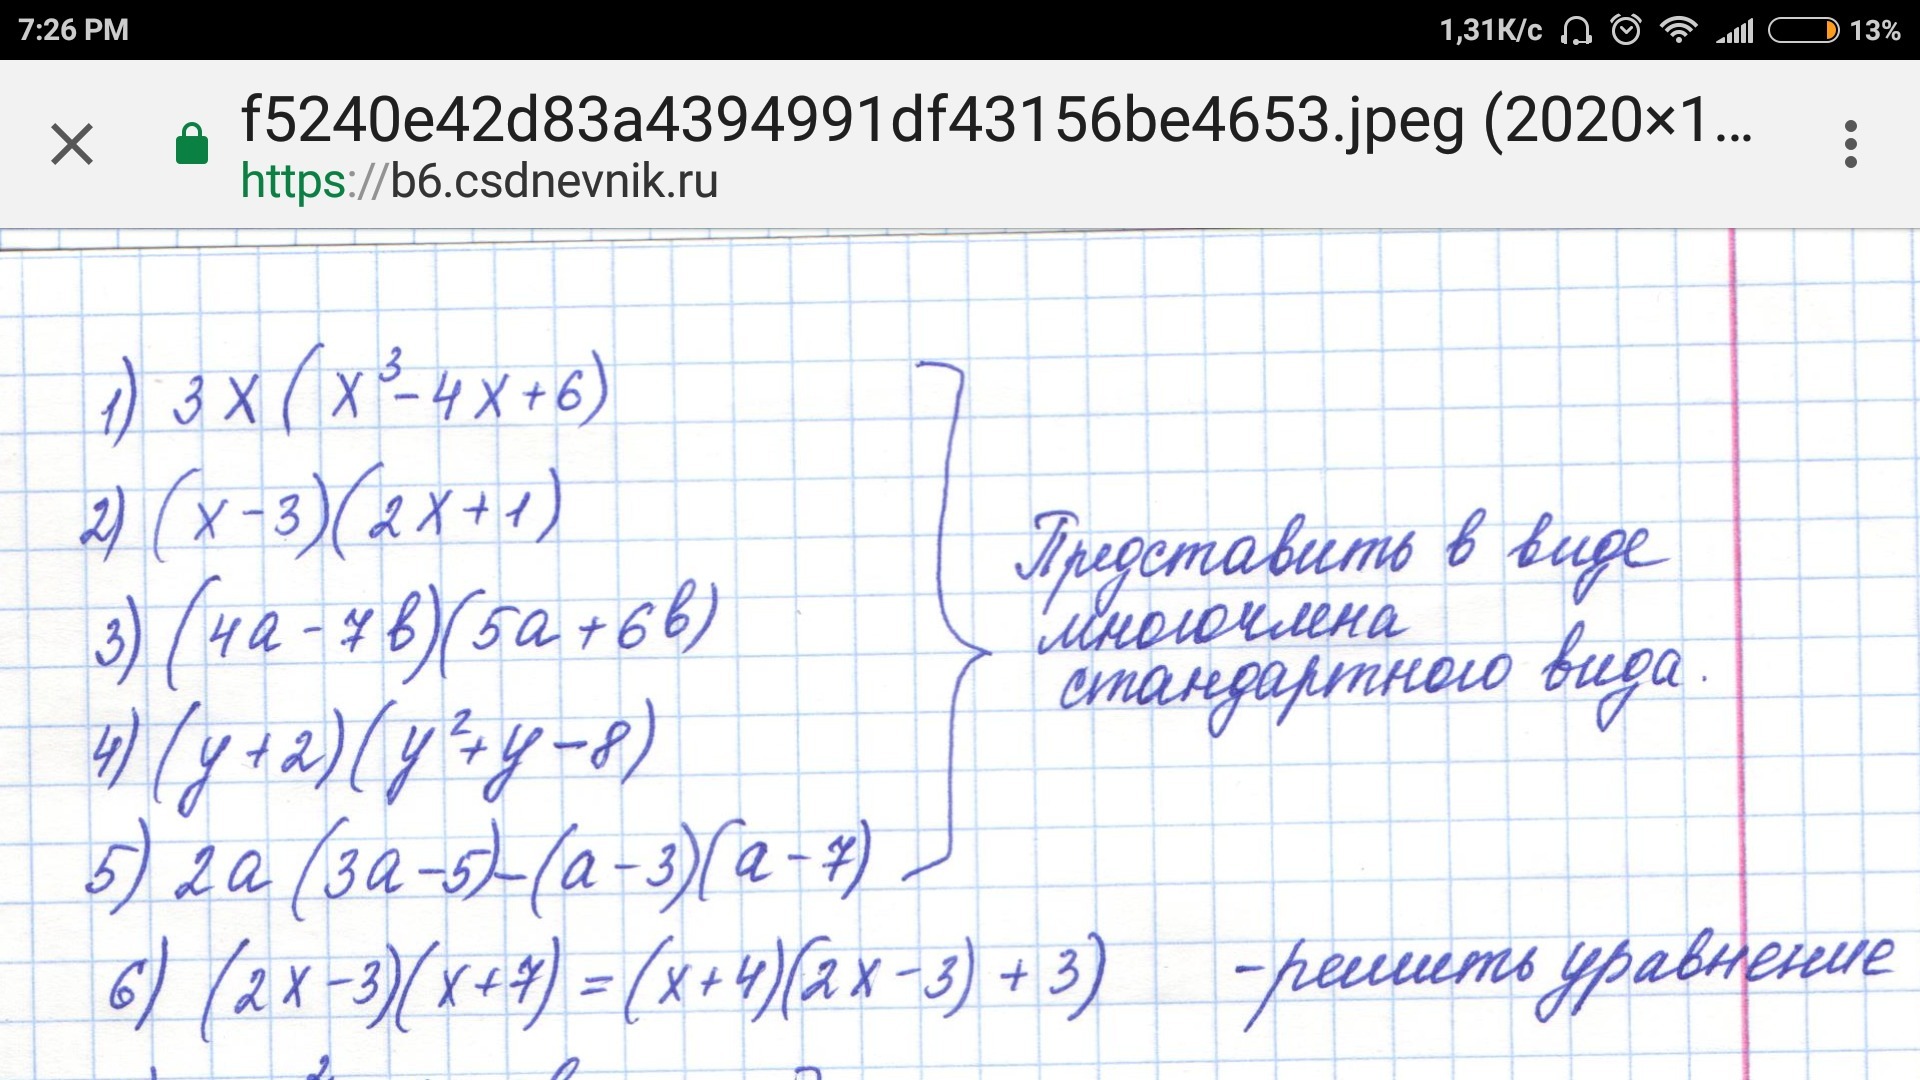 7:26 PM
1,31K/c
13%
f5240e42d83a4394991df43156be4653.jpeg (2020×1...
https://b6.csdnevnik.ru
1) 3x(x³-4x+6)
2) (x-3)(2x+1)
3) (4a-7b)(5a+6b)
4) (y+2)(y²+y-8)
5) 2a(3a-5)-(a-3)(a-7)
Представить в виде
многочлена
стандартного вида.
6) (2x-3)(x+7)=(x+4)(2x-3)+3) -решить уравнение